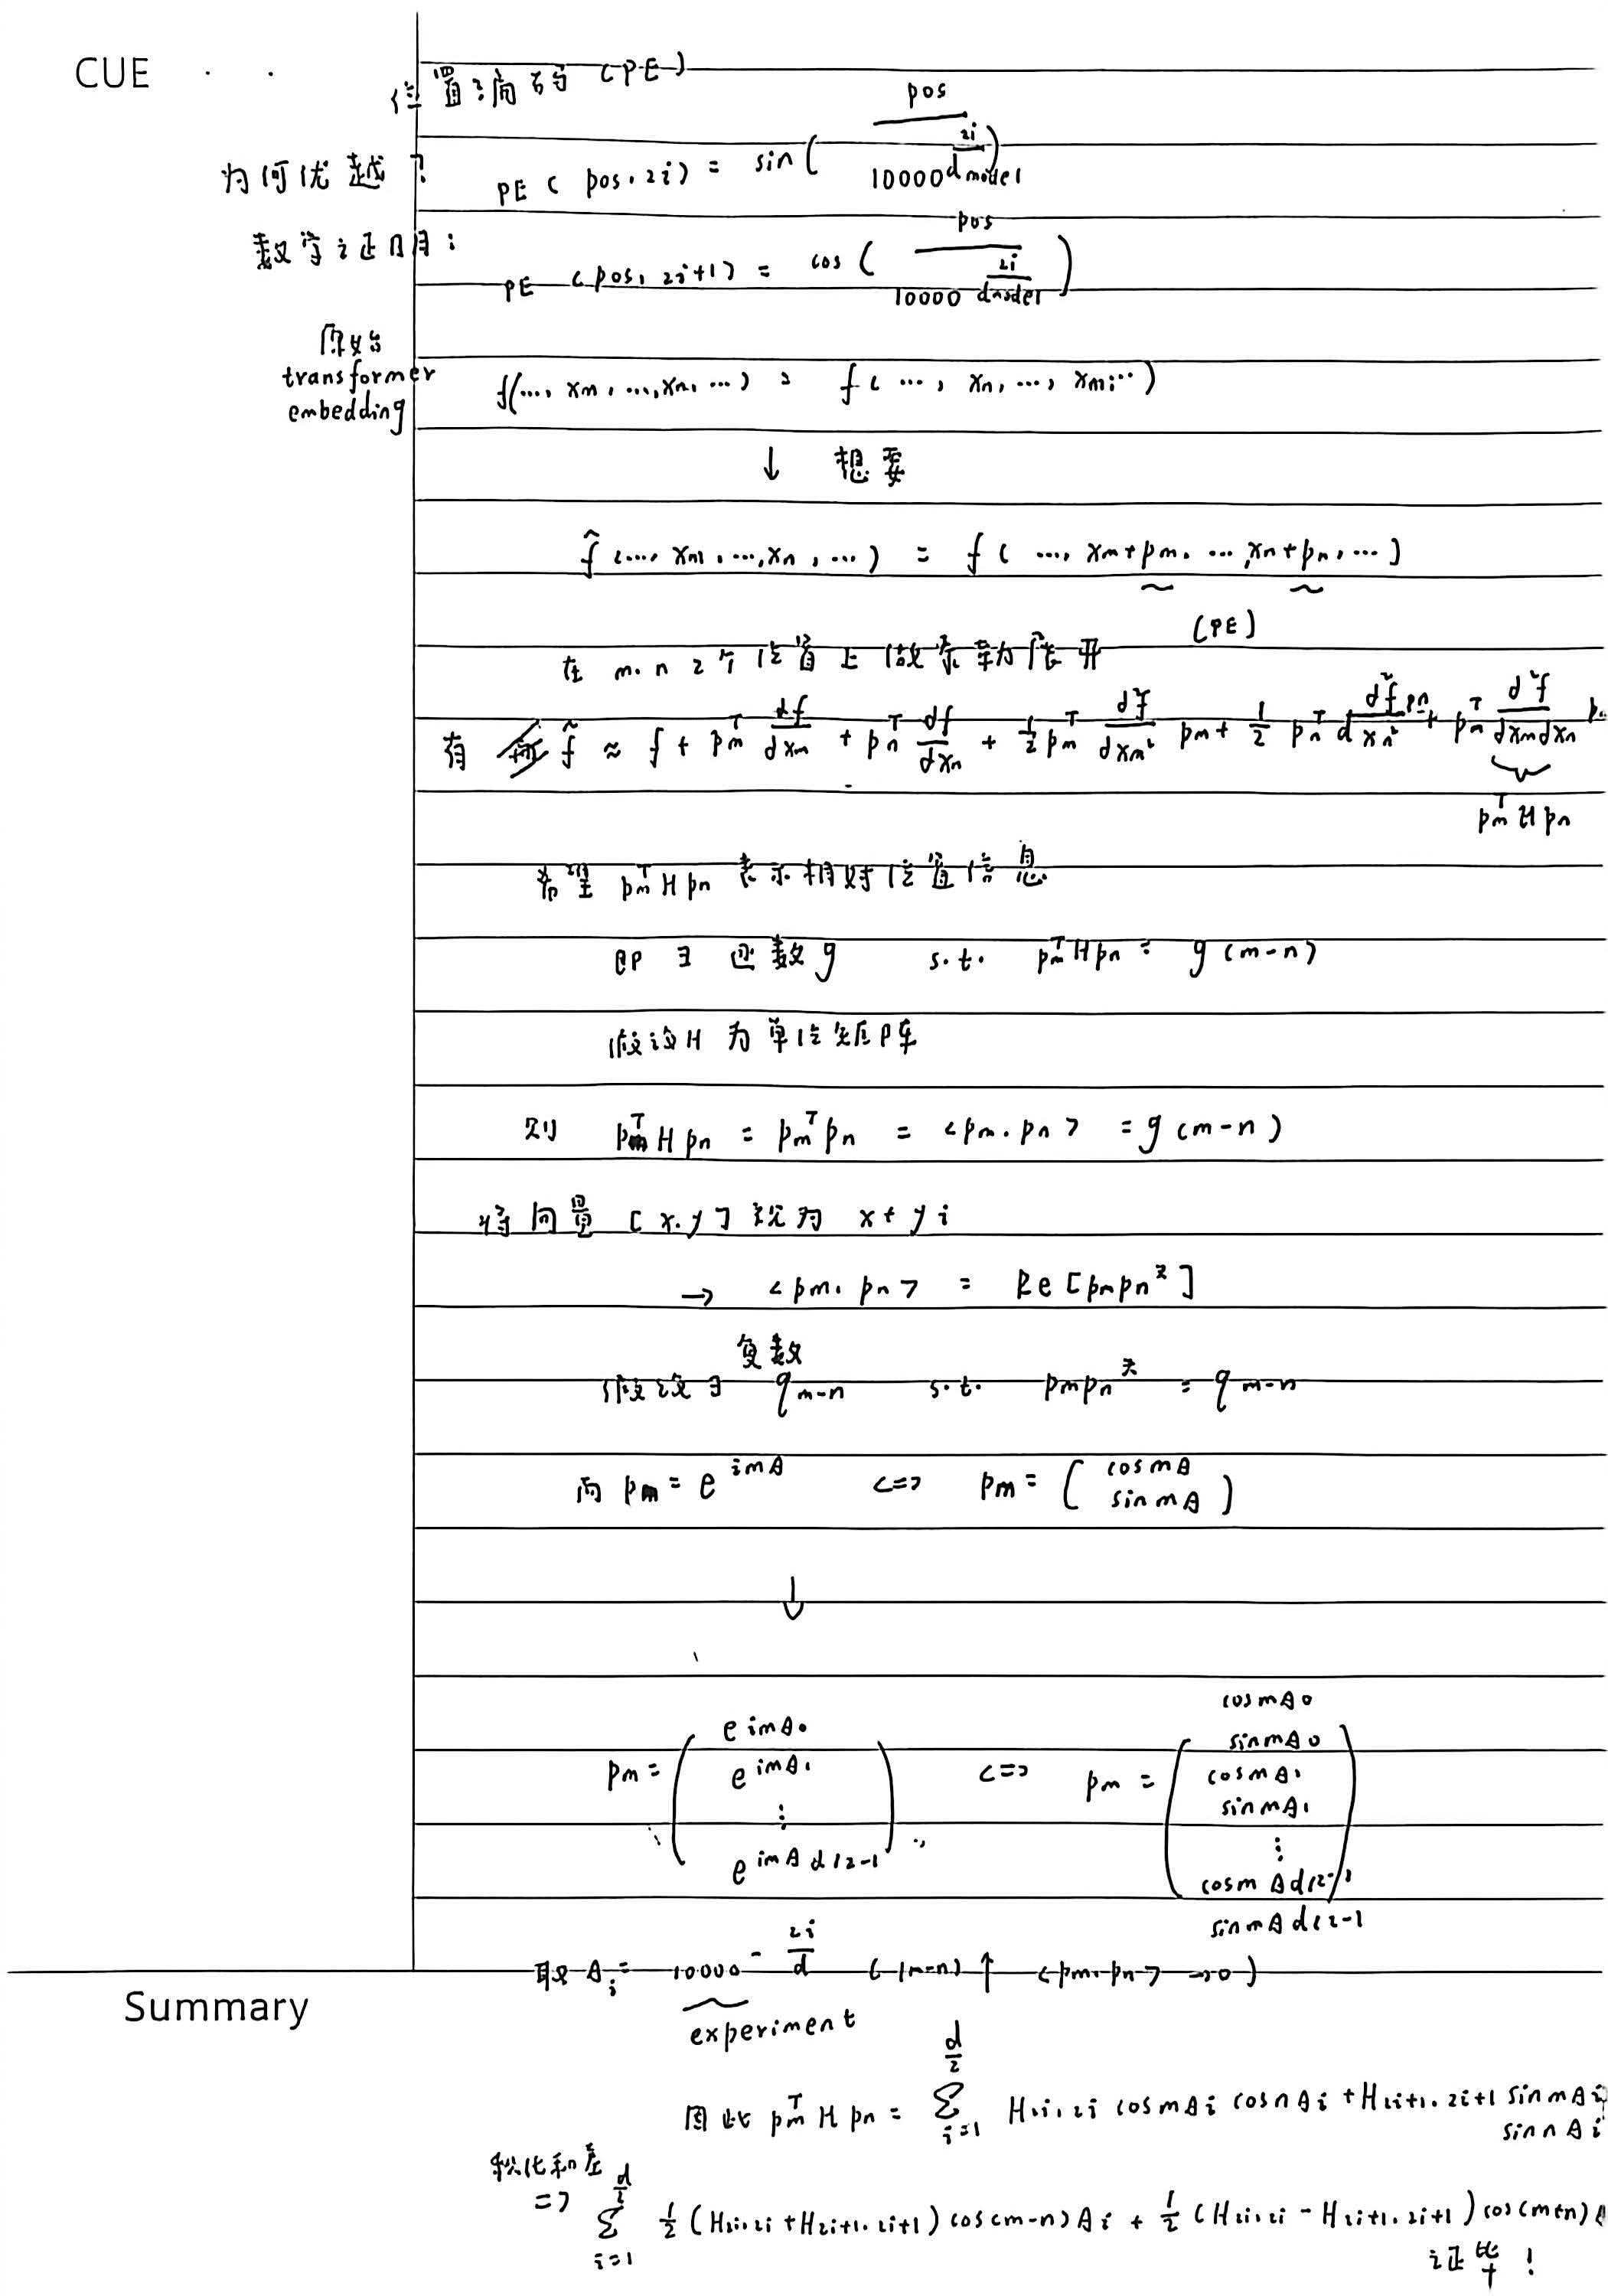 CUE
位置编码 (PE)
为何优越？
PE ( pos, 2i) = sin ( pos / 10000^(2i/dmodel) )
数学证明：
PE (pos, 2i+1) = cos ( pos / 10000^(2i/dmodel) )
原始
transformer
embedding
f(..., xm, ..., xn, ...) = f(..., xn, ..., xm, ...)
↓ 想要
f̃(..., xm, ..., xn, ...) = f( ..., xm+pm, ..., xn+pn, ...)
(PE)
在 m, n 2个位置上做泰勒展开
有 f̃ ≈ f + pm^T df/dxm + pn^T df/dxn + 1/2 pm^T d²f/dxm² pm + 1/2 pn^T d²f/dxn² pn + pm^T d²f/dxmdxn pn
pm^T H pn
希望 pm^T H pn 表示相对位置信息
即 ∃ 函数 g s.t. pm^T H pn = g (m-n)
假设 H 为单位矩阵
则 pm^T H pn = pm^T pn = <pm, pn> = g (m-n)
将向量 [x, y] 视为 x + yi
→ <pm, pn> = Re [pm pn*]
复数
假设 ∃ qm-n s.t. pm pn* = qm-n
而 pm = e^(imθ) <=> pm = ( cosmθ sinmθ )
↓
pm = ( e^(imθ0) e^(imθ1) ⋮ e^(imθd/2-1) ) <=> pm = ( cosmθ0 sinmθ0 cosmθ1 sinmθ1 ⋮ cosmθd/2-1 sinmθd/2-1 )
取 θi = 10000^(-2i/d) ( |m-n| ↑ <pm, pn> → 0 )
Summary
experiment
因此 pm^T H pn = Σ_{i=1}^{d/2} H2i,2i cosmθi cosnθi + H2i+1,2i+1 sinmθi
sinnθi
积化和差
=> Σ_{i=1}^{d/2} 1/2 (H2i,2i + H2i+1,2i+1) cos(m-n)θi + 1/2 (H2i,2i - H2i+1,2i+1) cos(m+n)θ
证毕！